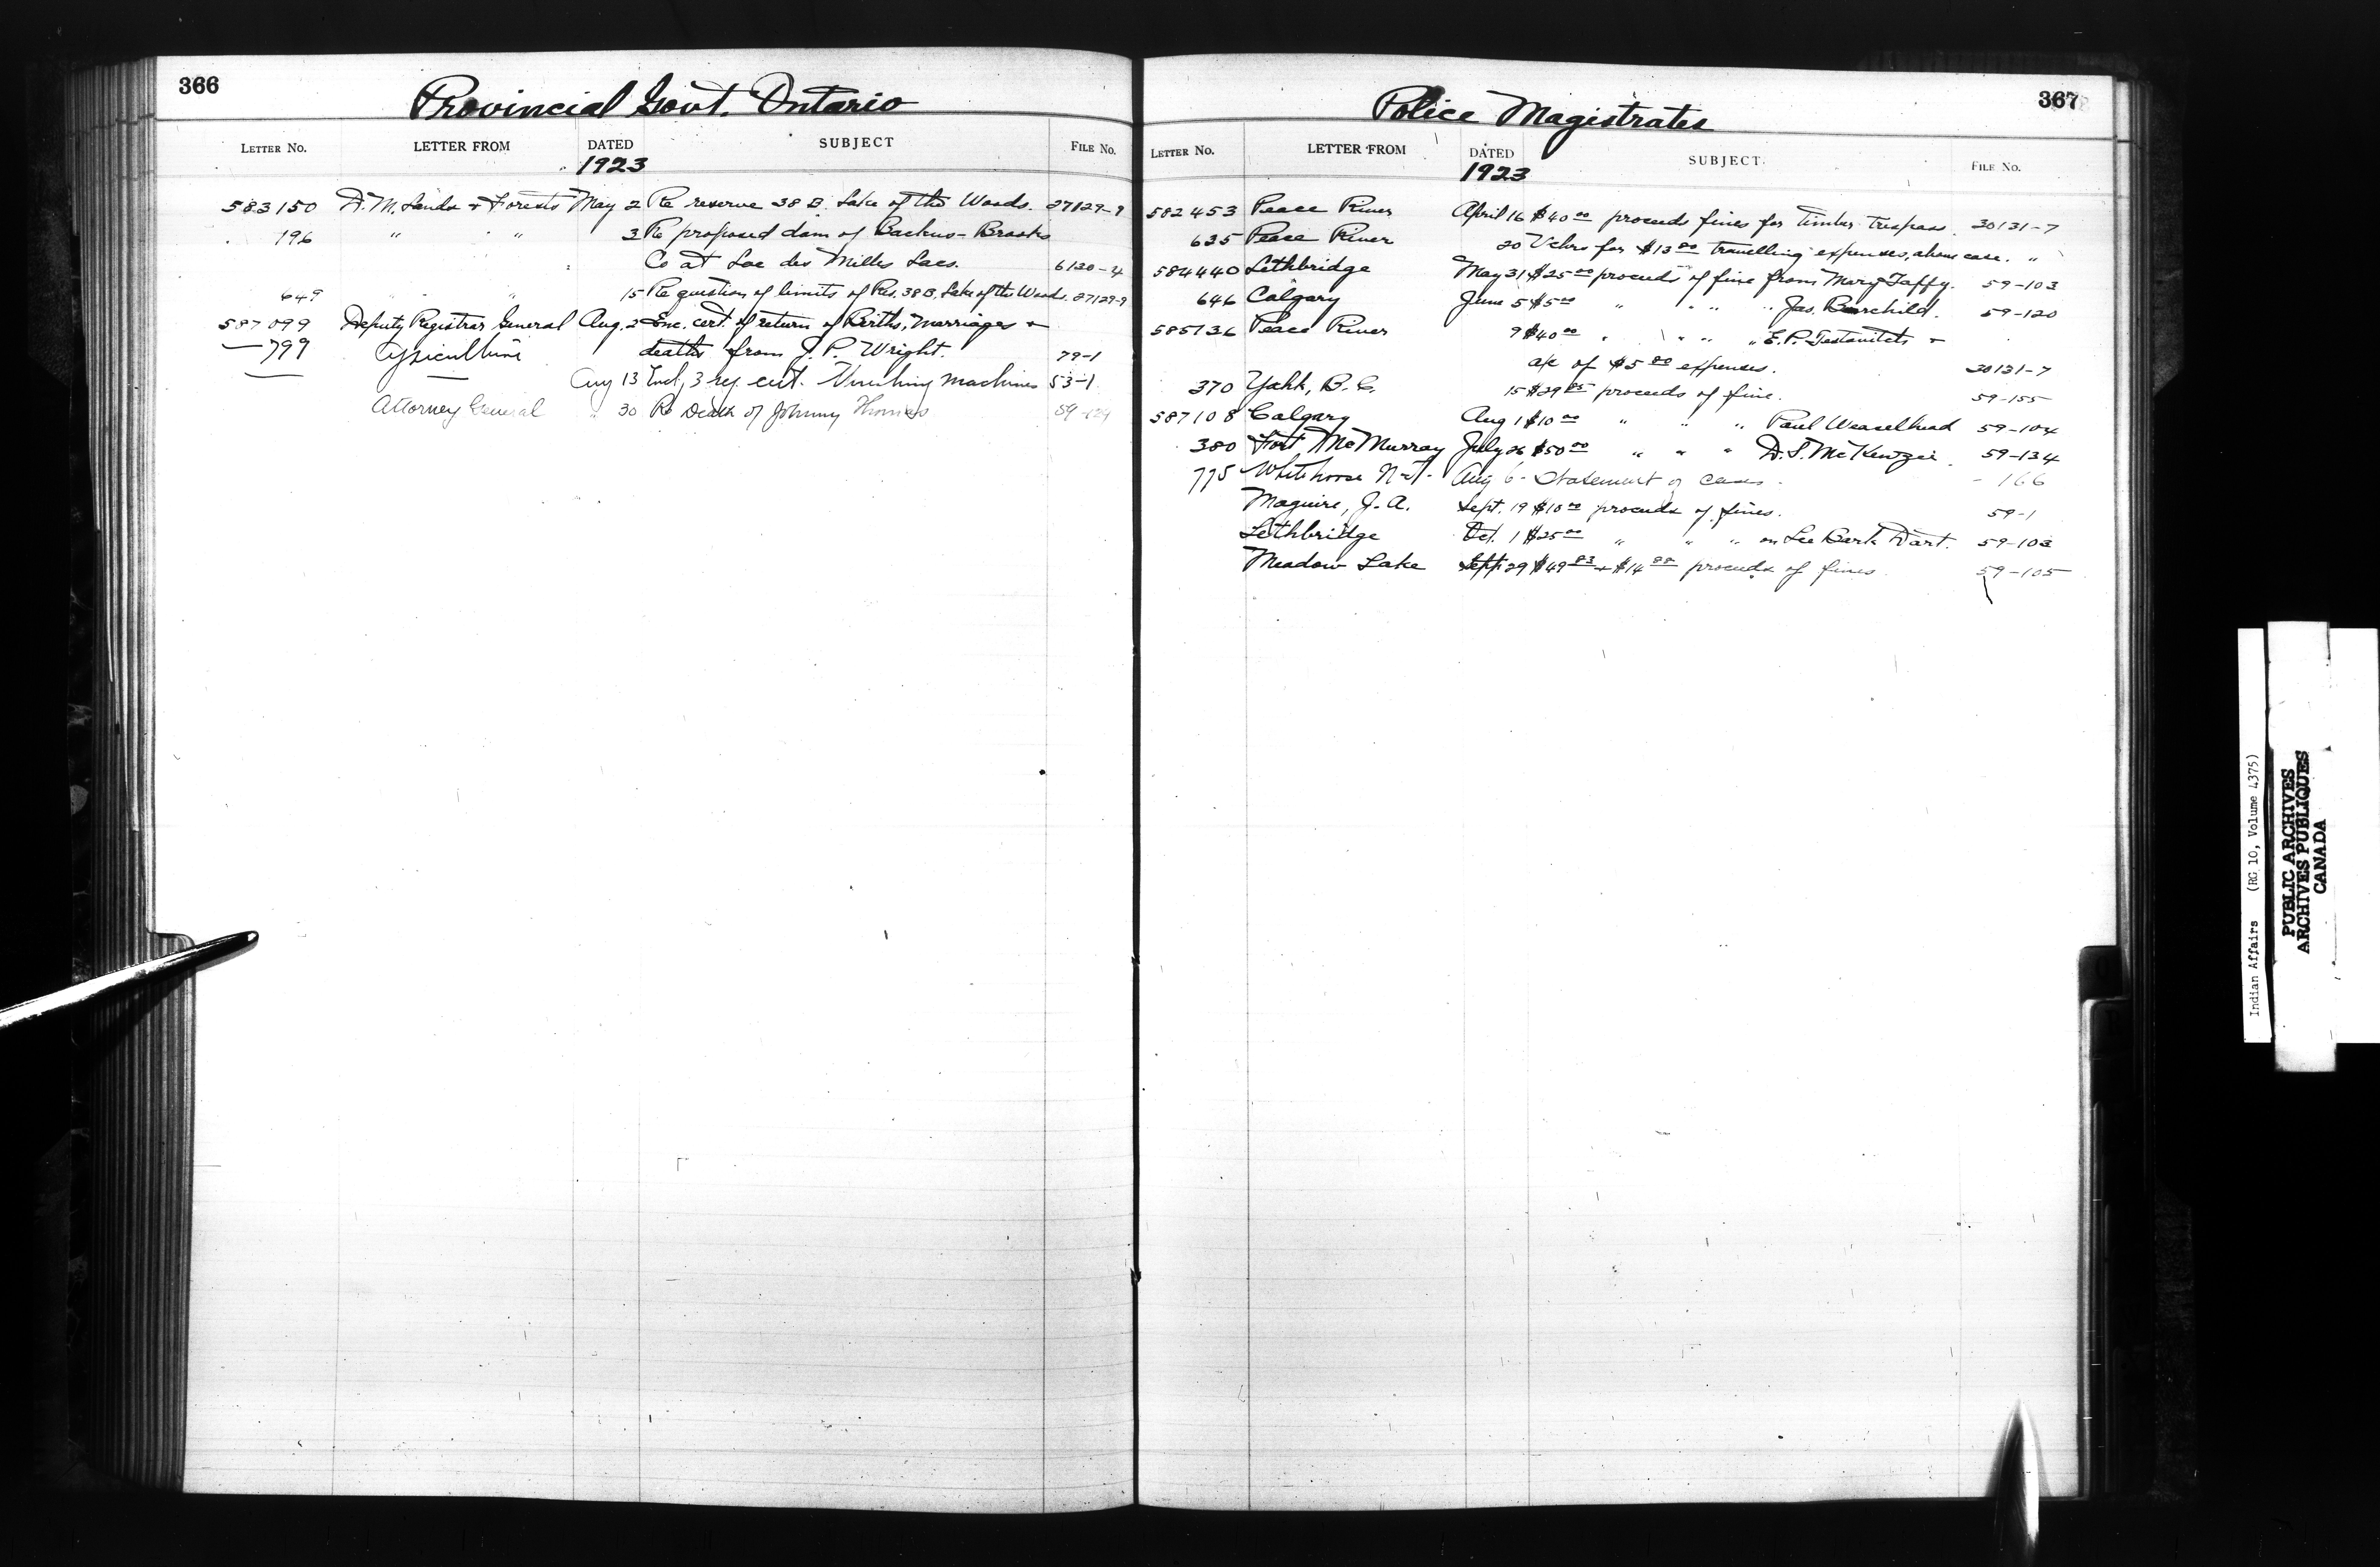 366
Provincial Govt. Ontario
LETTER No. LETTER FROM DATED SUBJECT FILE No.
1923
583150 D. M. Lands & Forests May 2 Re reserve 38 B. Lake of the Woods. 27129-9
196 " " 3 Re proposed dam of Backus-Brooks
Co at Lac des Milles Lacs. 6120-4
649 " " 15 Re question of limits of Res. 38 B. Lake of the Woods. 27129-9
587099 Deputy Registrar General Aug. 2 Enc. cert. of return of Births, Marriages &
deaths from J. P. Wright. 79-1
—799 Agriculture Aug 13 Encl, 3 reg. cert. Threshing Machines 53-1
Attorney General " 30 Re Death of Johnny Thomas 59-124
367
Police Magistrates
LETTER No. LETTER FROM DATED SUBJECT. FILE No.
1923
582453 Peace River April 16 $40 00 proceeds fines for timber trespass. 30131-7
635 Peace River 20 Vchrs for $13 00 travelling expenses, above case. "
584440 Lethbridge May 31 $25 00 proceeds of fine from Mary Taffy. 59-103
646 Calgary June 5 $5 00 " " " " Jas. Bearchild. 59-120
585136 Peace River 9 $40 00 " " " " E. P. &
a/c of $5 80 expenses. 30131-7
370 Yahk, B. C. 15 $29 85 proceeds of fine. 59-155
587108 Calgary Aug 1 $10 00 " " " Paul Weaselhead 59-104
380 Fort McMurray July 26 $50 00 " " " D. S. McKenzie. 59-134
775 Whitehorse Aug 6 - Statement of cases - - 166
Maguire, J. A. Sept. 19 $10 00 proceeds of fines. 59-1
Lethbridge Oct. 1 $25 00 " " " on Lee Dart. 59-103
Meadow Lake Sept 29 $49 83 & $14 88 proceeds of fines 59-105
Indian Affairs (RG 10, Volume 4375)
PUBLIC ARCHIVES
ARCHIVES PUBLIQUES
CANADA